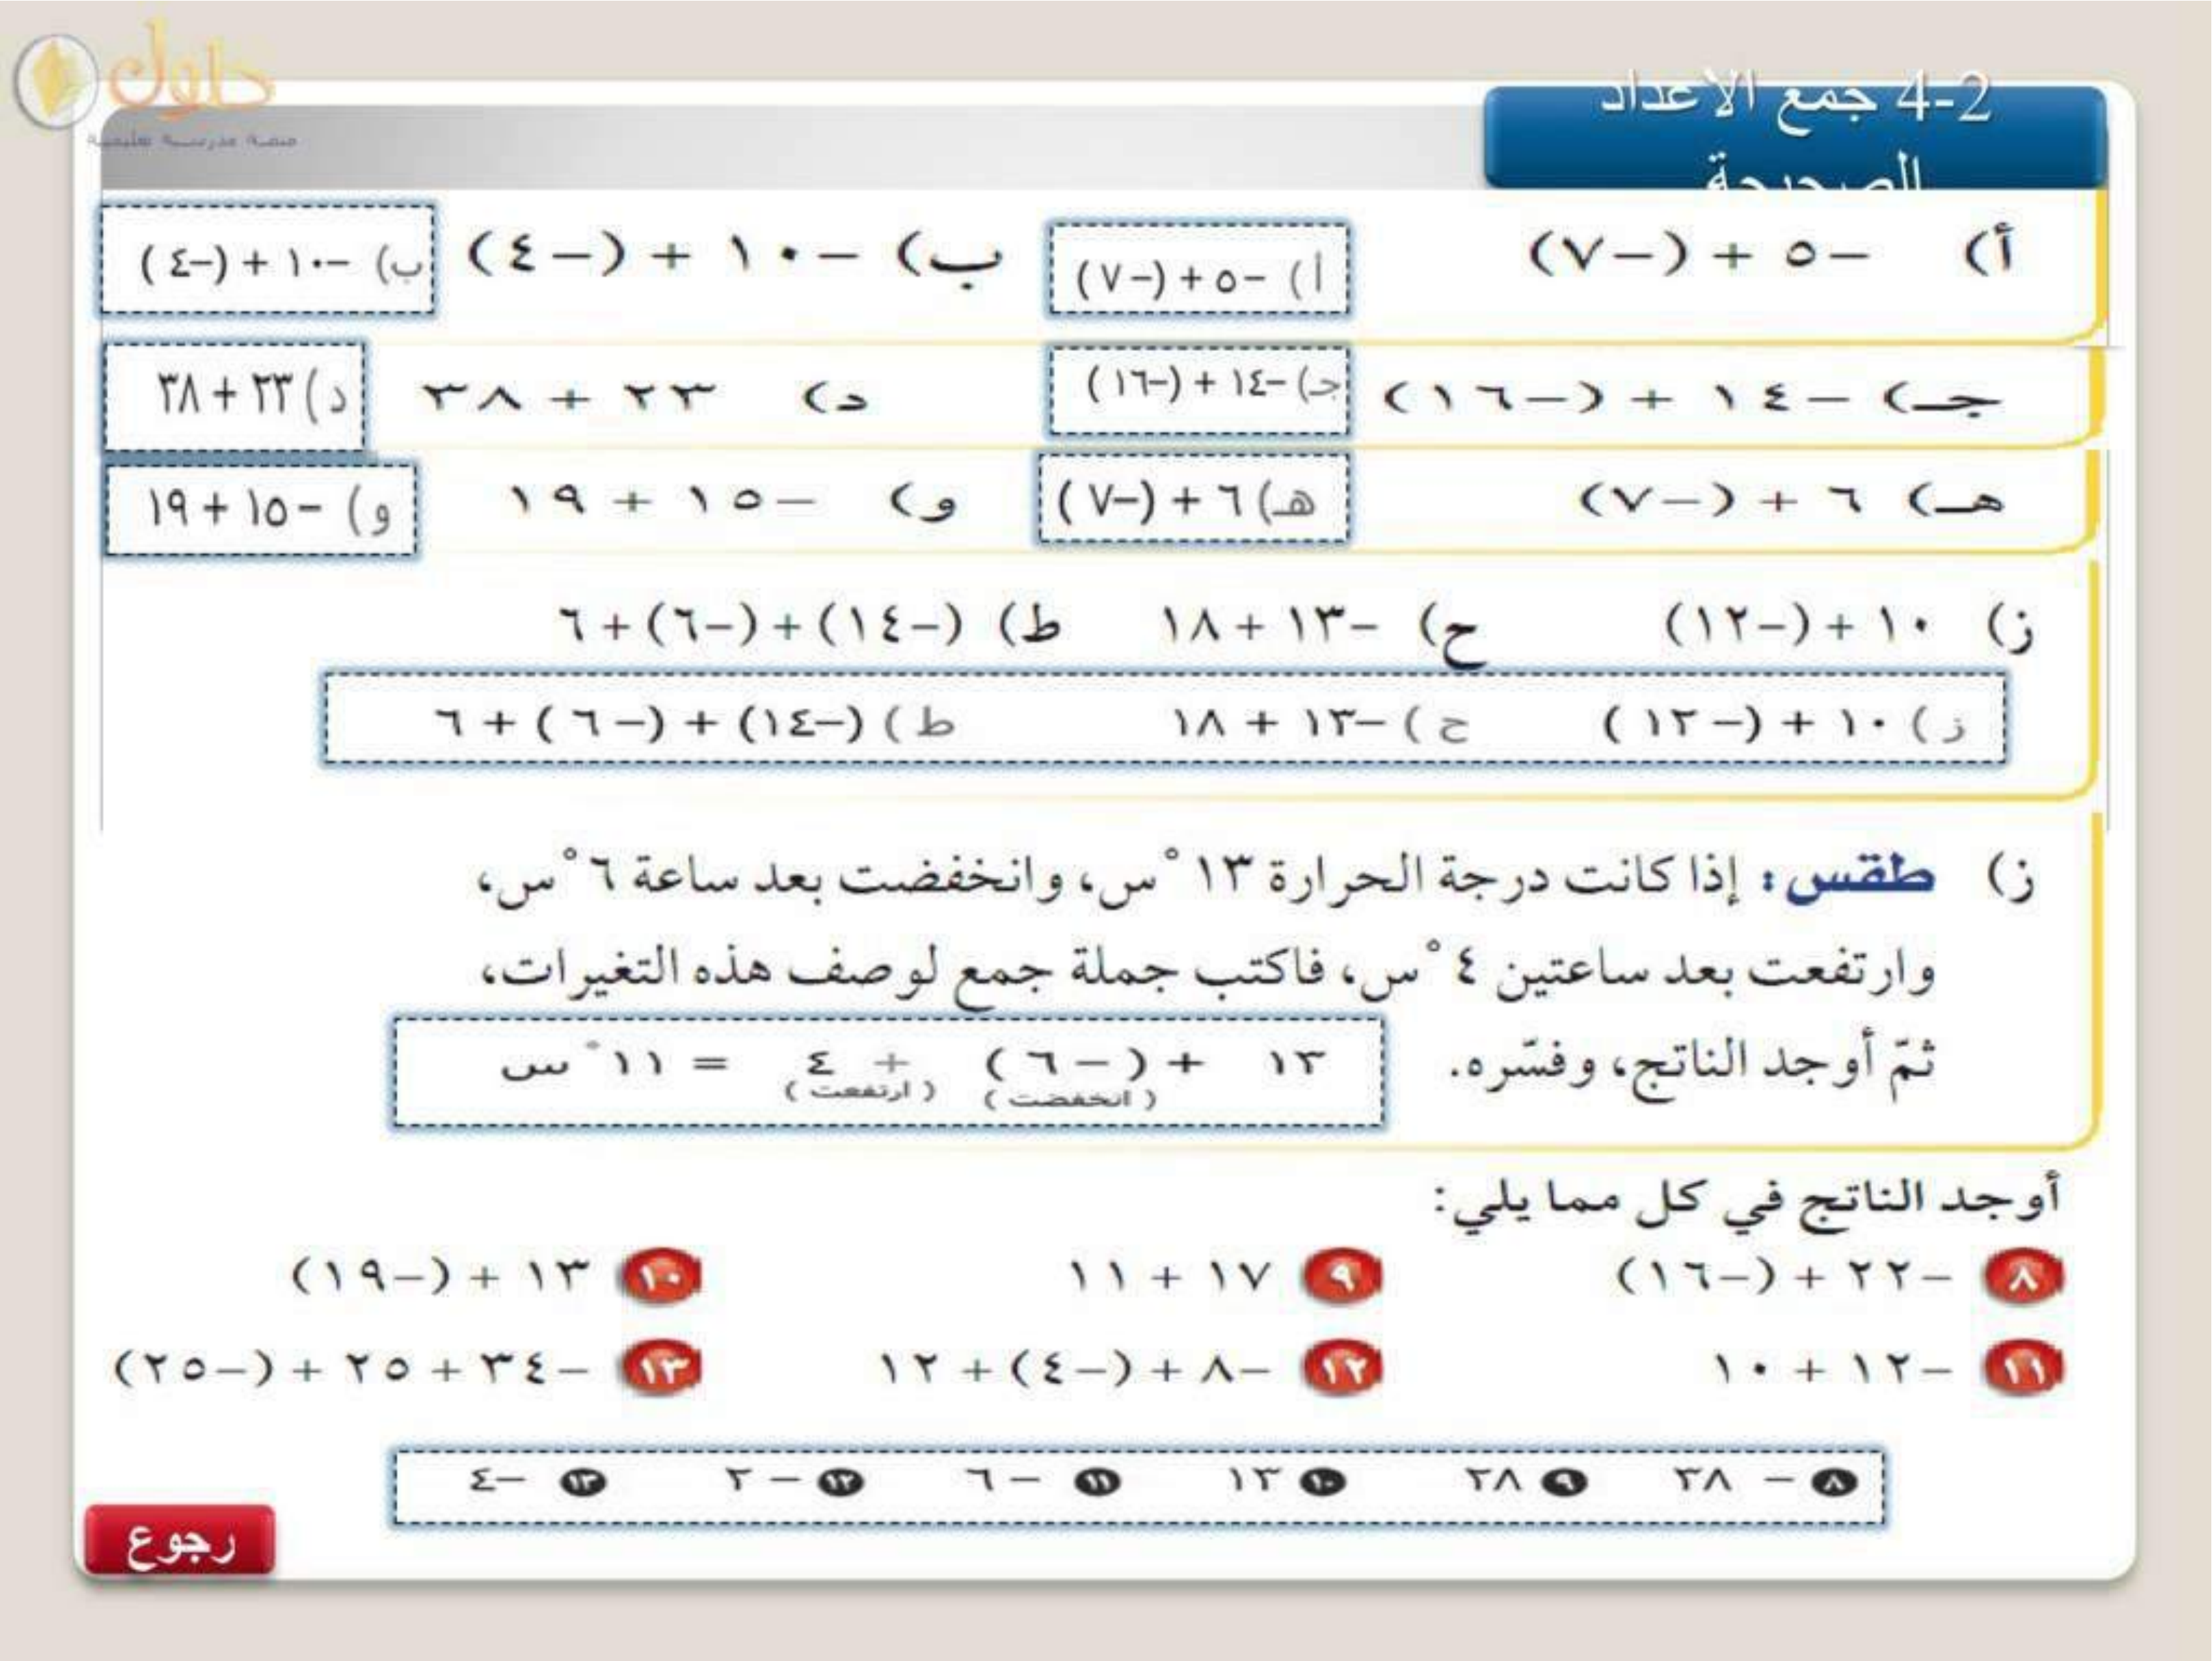 حلول
منصة مدرسية تعليمية
4-2 جمع الأعداد
الصحيحة
أ) −٥ + (−٧)
أ) −٥ + (−٧)
ب) −١٠ + (−٤)
ب) −١٠ + (−٤)
جـ) −١٤ + (−١٦)
جـ) −١٤ + (−١٦)
د) ٢٣ + ٣٨
د) ٢٣ + ٣٨
هـ) ٦ + (−٧)
هـ) ٦ + (−٧)
و) −١٥ + ١٩
و) −١٥ + ١٩
ز) ١٠ + (−١٢) ح) −١٣ + ١٨ ط) (−١٤) + (−٦) + ٦
ز) ١٠ + (−١٢) ح) −١٣ + ١٨ ط) (−١٤) + (−٦) + ٦
ز) طقس: إذا كانت درجة الحرارة ١٣ °س، وانخفضت بعد ساعة ٦ °س،
وارتفعت بعد ساعتين ٤ °س، فاكتب جملة جمع لوصف هذه التغيرات،
ثمّ أوجد الناتج، وفسّره.
١٣ + (−٦) + ٤ = ١١ °س
(انخفضت) (ارتفعت)
أوجد الناتج في كل مما يلي:
٨ −٢٢ + (−١٦) ٩ ١٧ + ١١ ١٠ ١٣ + (−١٩)
١١ −١٢ + ١٠ ١٢ −٨ + (−٤) + ١٢ ١٣ −٣٤ + ٢٥ + (−٢٥)
٨ −٣٨ ٩ ٢٨ ١٠ ١٣ ١١ −٦ ١٢ −٢ ١٣ −٤
رجوع